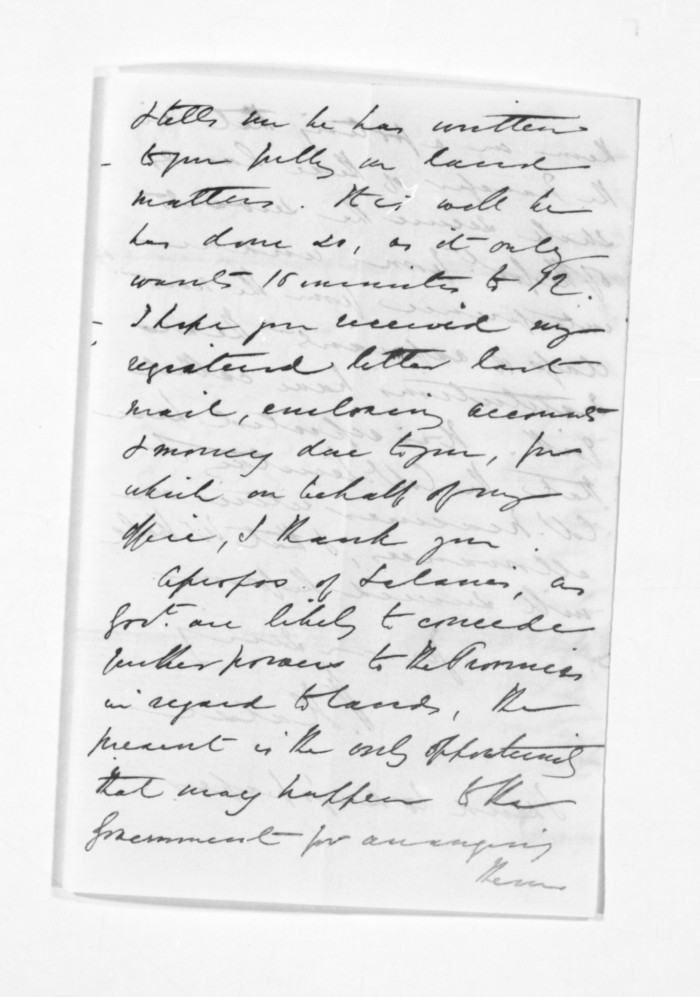 & tells me he has written
to you fully on land
matters. It is well he
has done so, as it only
wants 10 minutes to 12.
I hope you received my
registered letter last
mail, enclosing accounts
& money due to you, for
which on behalf of my
office, I thank you.
Apropos of Salaries, as
Govt. are likely to concede
further powers to the Provinces
in regard to lands, the
present is the only opportunity
that may happen to the
Government for arranging
them